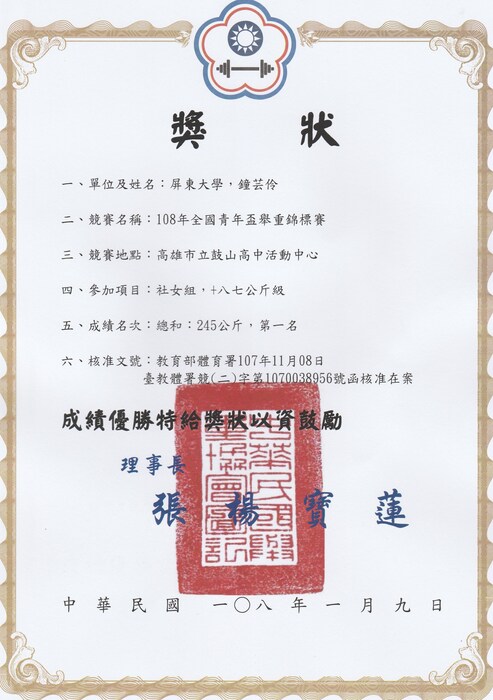 獎狀
一、單位及姓名：屏東大學，鐘芸伶
二、競賽名稱：108年全國青年盃舉重錦標賽
三、競賽地點：高雄市立鼓山高中活動中心
四、參加項目：社女組，+八七公斤級
五、成績名次：總和：245公斤，第一名
六、核准文號：教育部體育署107年11月08日
臺教體署競(二)字第1070038956號函核准在案
成績優勝特給獎狀以資鼓勵
理事長
張楊寶蓮
中華民國舉重協會圖記
中華民國一〇八年一月九日